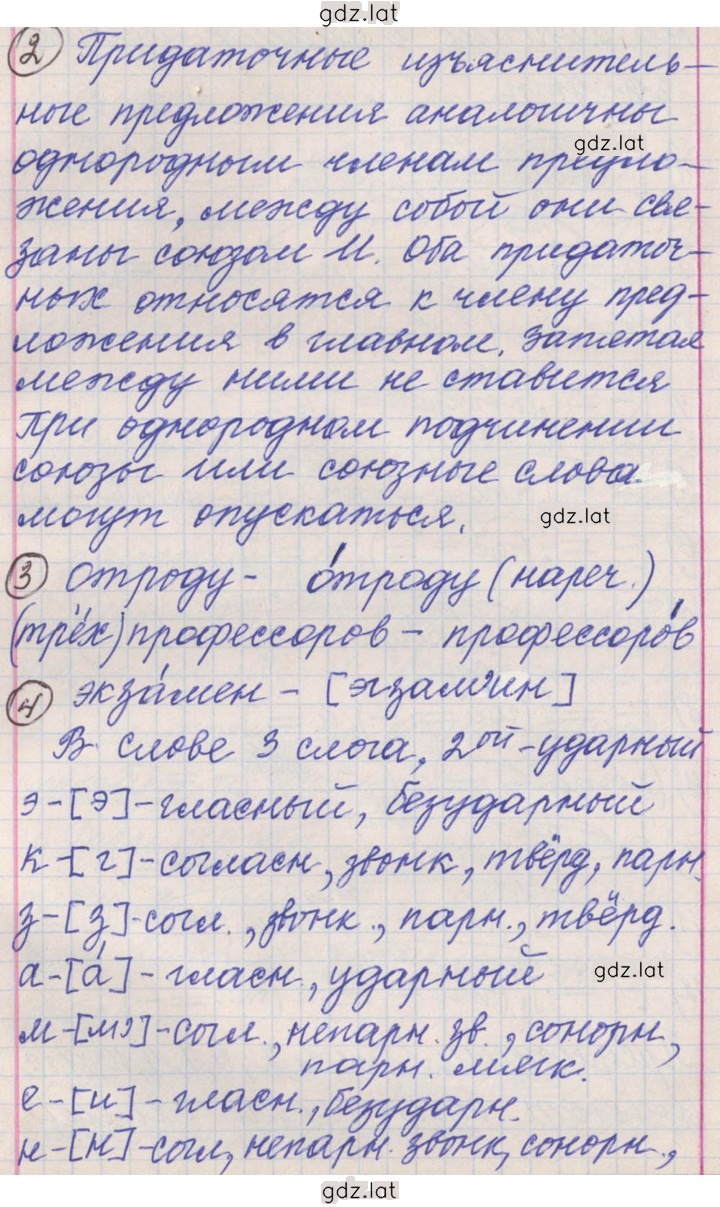 gdz.lat
2 Придаточные изъяснитель-
ные предложения аналогичны
gdz.lat
однородным членам предло-
жения, между собой они свя-
заны союзом И. Оба придаточ-
ных относятся к члену пред-
ложения в главном. Запятая
между ними не ставится
При однородном подчинении
союзы или союзные слова
могут опускаться.
gdz.lat
3 отроду - о́троду (нареч.)
(трёх) профессоров - профессоро́в
4 экза́мен - [эгзам'ин]
В слове 3 слога, 2ой - ударный
э - [э] - гласный, безударный
к - [г] - согласн., звонк., твёрд, парн.
з - [з] - согл., звонк., парн., твёрд.
а - [а́] - гласн., ударный
gdz.lat
м - [м'] - согл., непарн. зв., сонорн.,
парн. мягк.
е - [и] - гласн., безударн.
н - [н] - согл, непарн. звонк, сонорн.,
gdz.lat